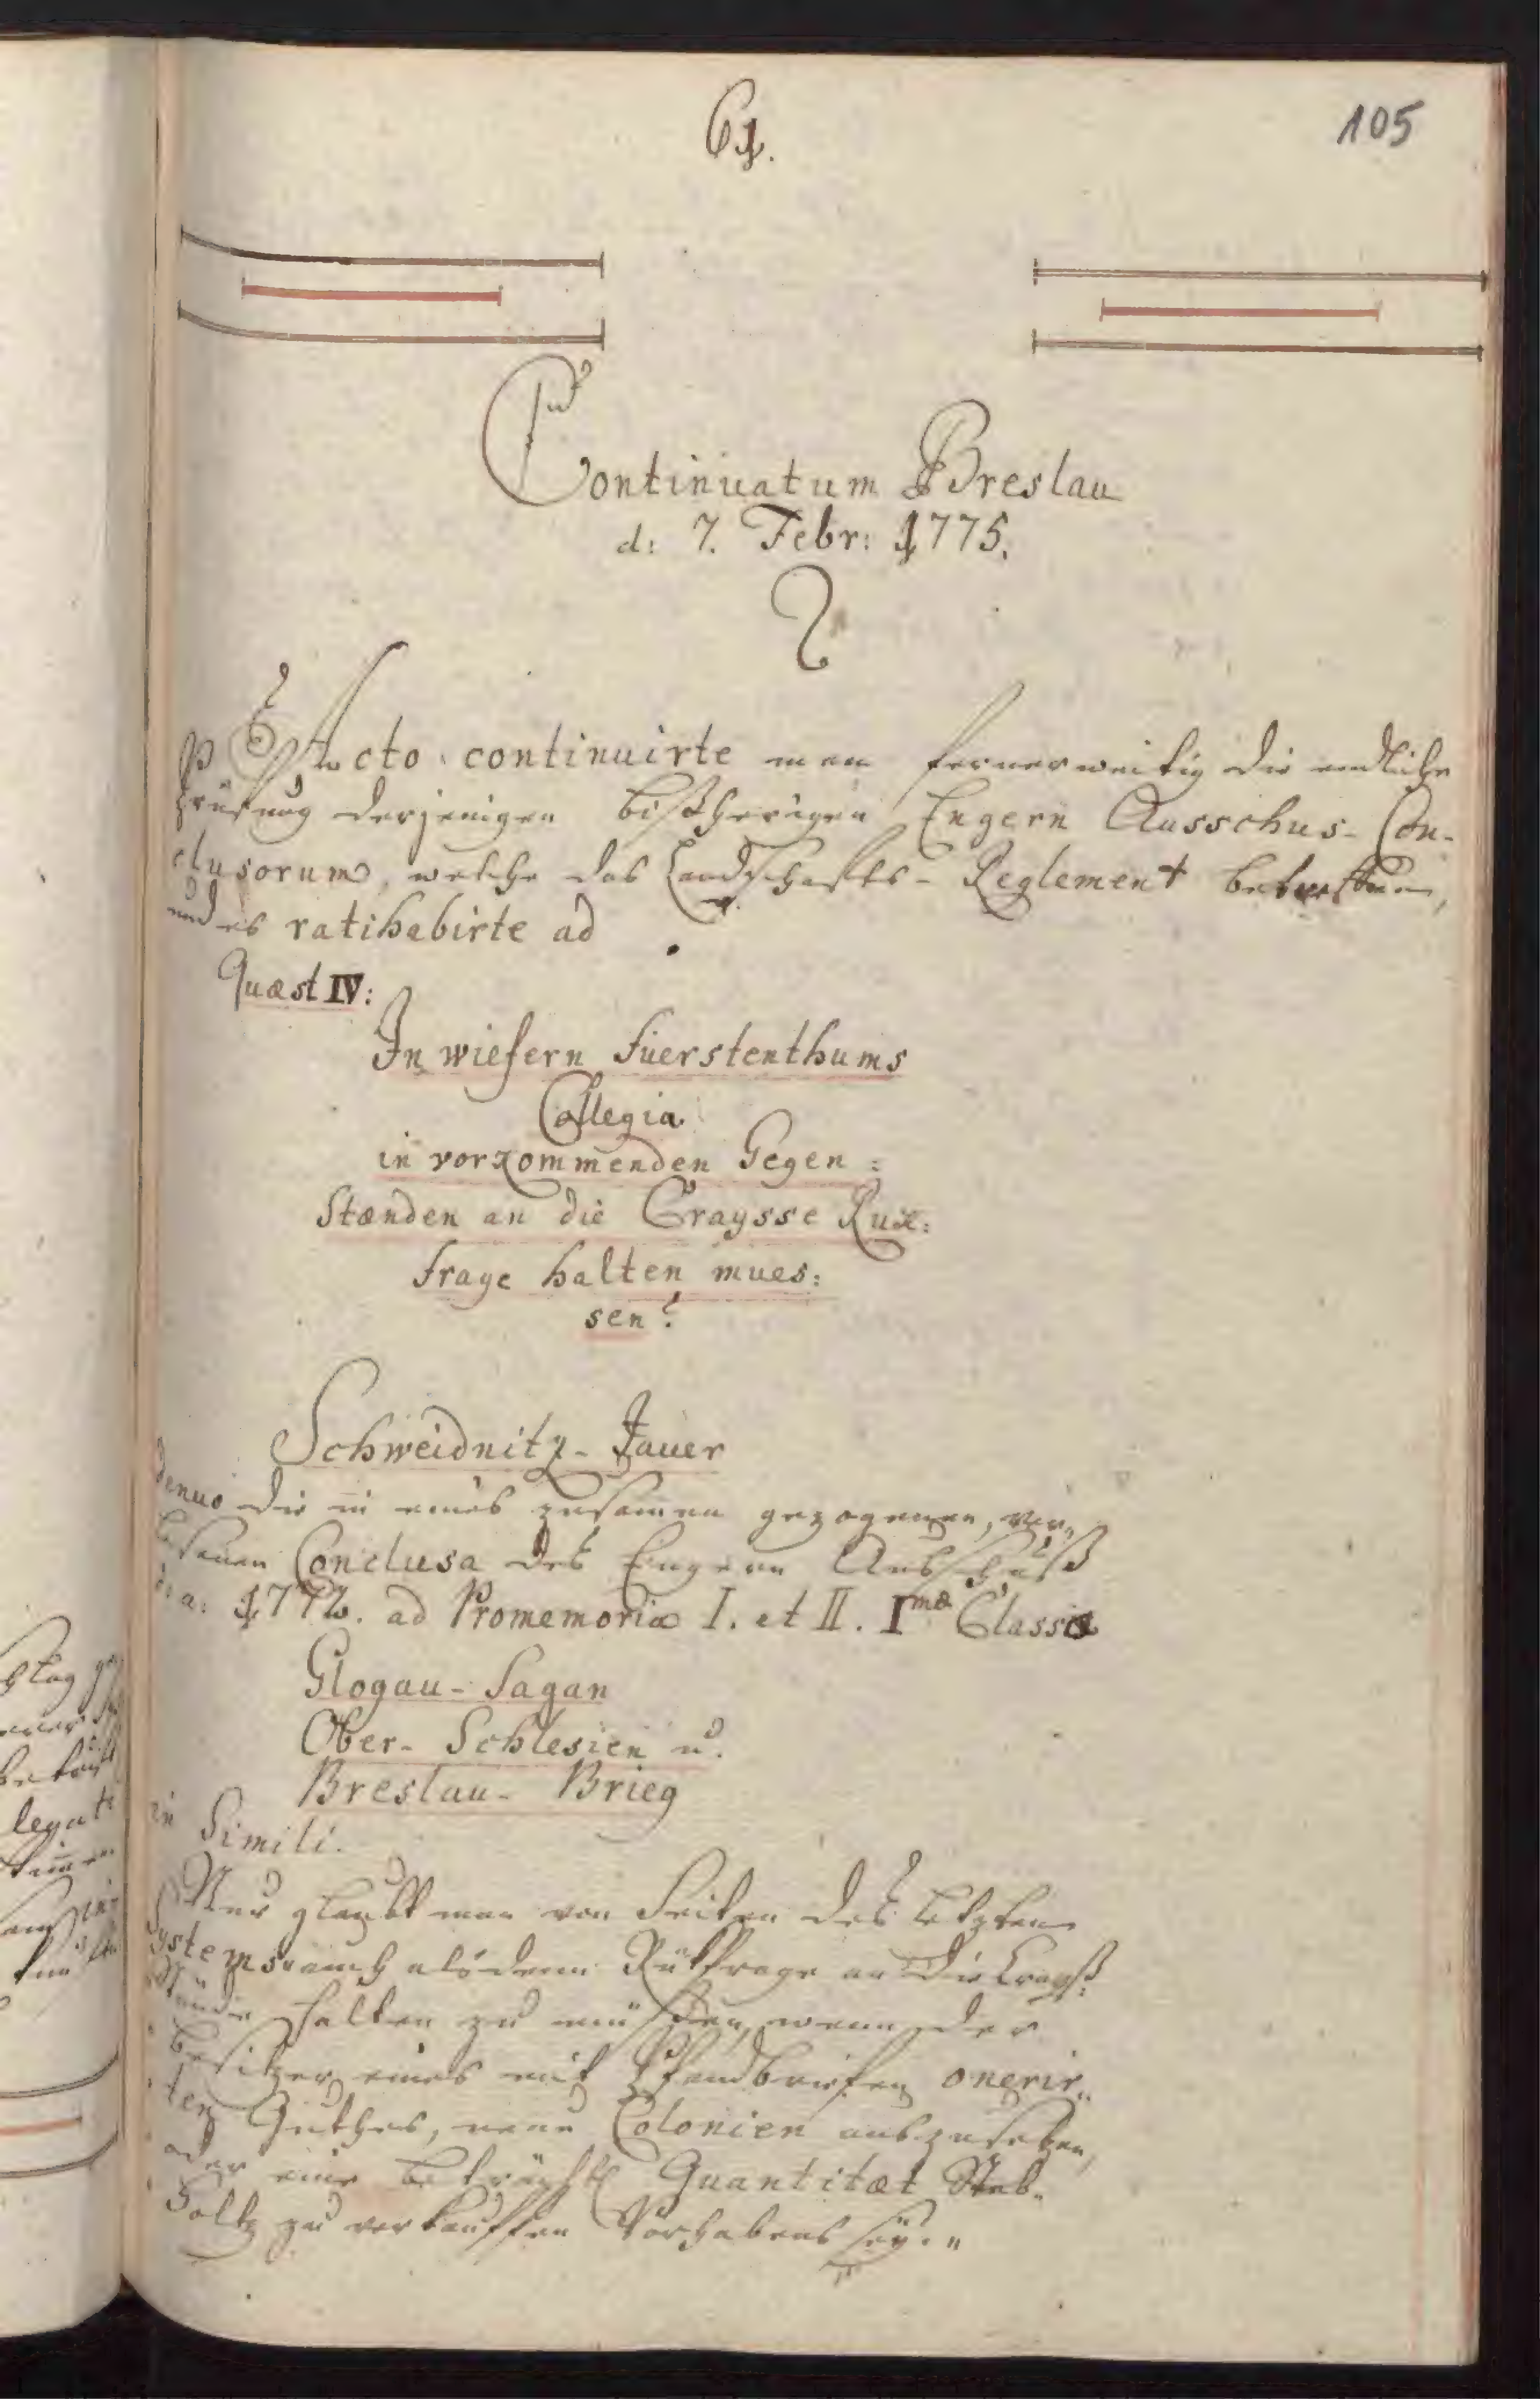 61.
105
Continuatum Breslau
d: 7. Febr: 1775.
Acto continuirte man fernerweitig die endliche
Prüfung derjenigen bißherigen Engern Ausschus-Con-
clusorum, welche das Landschafts-Reglement betreffen,
und es ratihabirte ad
Quæst IV:
In wiefern Fuerstenthums
Collegia
in vorkommenden Gegen:
Stænden an die Craysse Ruk:
frage halten mues:
sen?
Schweidnitz-Jauer
denuo die in eines zusammen gezogenen, ver„
lesenen Conclusa des Engern Ausschuß
d: a: 1772. ad Promemoria I. et II. Imæ Classis
Glogau-Sagan
Ober-Schlesien u.
Breslau-Brieg
in Simili.
Nur glaubt man von Seiten des letztern
Systems auch alsdenn Rükfrage an die Crayß:
Stände halten zu müssen, wenn der
Besitzer eines mit Pfandbriefen onerir„
ten Guthes, neue Colonien auszusetzen,
oder eine beträchtl Quantitæt Stab„
Holtz zu verkauffen Vorhabens sey.„